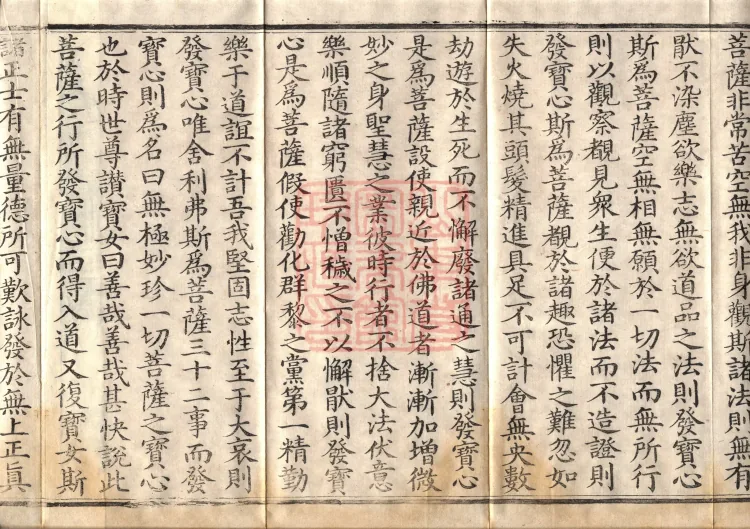 菩薩非常苦空無我非身觀斯諸法則無有
猒不染塵欲樂志無欲道品之法則發寶心
斯為菩薩空無相無願於一切法而無所行
則以觀察覩見衆生便於諸法而不造證則
發寶心斯為菩薩覩於諸趣恐懼之難忽如
失火燒其頭髮精進具足不可計會無央數
劫遊於生死而不懈廢諸通之慧則發寶心
是為菩薩設使親近於佛道者漸漸加增微
妙之身聖慧之業彼時行者不捨大法伏意
樂順隨諸窮匱不憎穢之不以懈猒則發寶
心是為菩薩假使勸化群黎之黨第一精勤
樂于道誼不計吾我堅固志性至于大哀則
發寶心唯舍利弗斯為菩薩三十二事而發
寶心則為名曰無極妙珍一切菩薩之寶心
也於時世尊讃寶女曰善哉善哉甚快說此
菩薩之行所發寶心而得入道又復寶女斯
諸正士有無量德所可歎詠發於無上正真